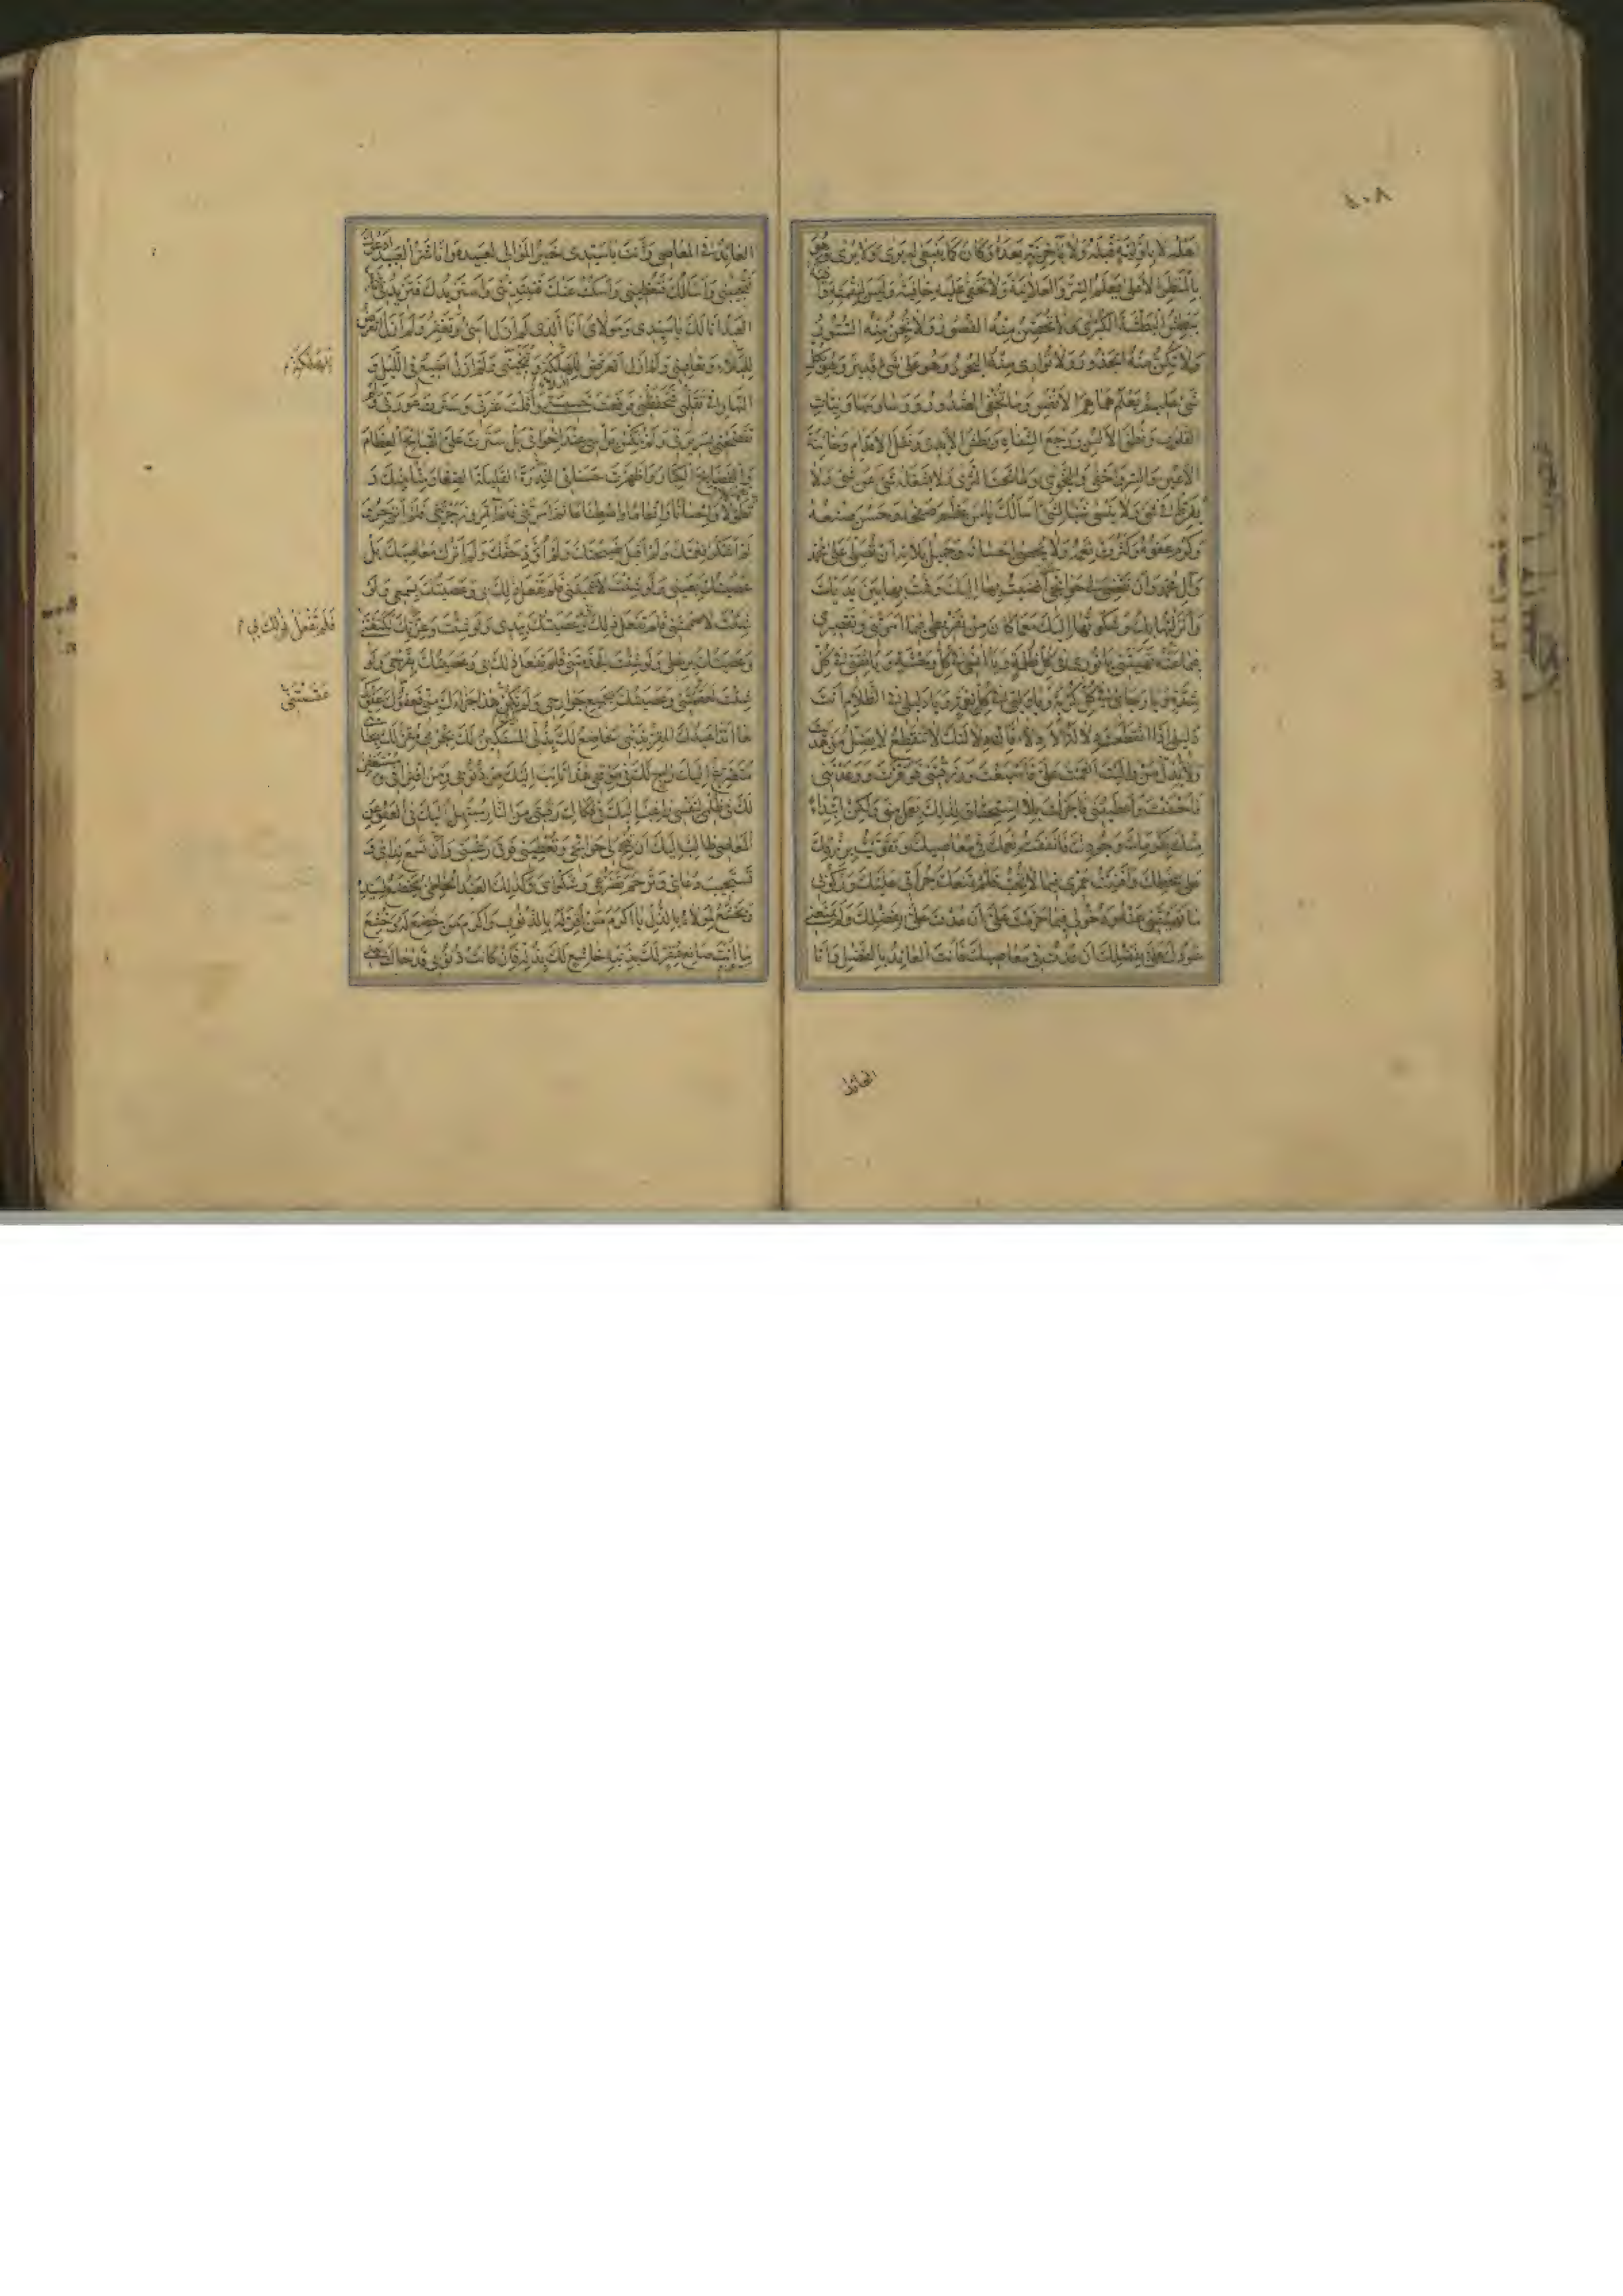 ٤٠٨
أهله لا بأولية قبله ولا بآخرية بعده وكان كما ينبغي له يرى ولا يرى وهو
بالمنظر الأعلى يعلم السر والعلانية ولا تخفى عليه خافية وليس لنقمته واقية
يبطش البطشة الكبرى ولا تحصن منه القصور ولا تجن منه الستور
ولا تكن منه الجدور ولا توارى منه البحور وهو على كل شيء قدير وهو بكل
شيء عليم يعلم هماهم الأنفس وما تخفي الصدور ووساوسها ونيات
القلوب ونطق الألسن ورجع الشفاه وبطش الأيدي ونقل الأقدام وخائنة
الأعين والسر وأخفى والنجوى وما تحت الثرى ولا يشغله شيء عن شيء ولا
يفرط في شيء ولا ينسى شيئا لشيء أسألك يا من عظم صفحه وحسن صنعه
وكرم عفوه وكثرت نعمه ولا يحصى إحسانه وجميل بلائه أن تصلي على محمد
وآل محمد وأن تقضي لي حوائجي التي أفضيت بها إليك وقمت بها بين يديك
وأنزلتها بك وشكوتها إليك مع ما كان من تفريطي فيما أمرتني وتقصيري
فيما نهيتني يا نوري في كل ظلمة ويا أنسي في كل وحشة ويا ثقتي في كل
شدة ويا رجائي في كل كربة ويا وليي في كل نعمة ويا دليلي في الظلام أنت
دليلي إذا انقطعت دلالة الأدلاء فإن دلالتك لا تنقطع لا يضل من هديت
ولا يذل من واليت أنعمت علي فأسبغت ورزقتني فوفرت ووعدتني
فأحسنت وأعطيتني فأجزلت بلا استحقاق لذلك بعمل مني ولكن ابتداء
منك بكرمك وجودك فأنفقت نعمك في معاصيك وتقويت برزقك
على سخطك وأفنيت عمري فيما لا تحب فلم تمنعك جرأتي عليك وركوبي
ما نهيتني عنه ودخولي فيما حرمت علي أن عدت علي بفضلك ولم يمنعني
عودك علي بفضلك أن عدت في معاصيك فأنت العائد بالفضل وأنا
العائد
العائد في المعاصي وأنت يا سيدي خير الموالي لعبيده وأنا شر العبيد أدعوك
فتجيبني وأسألك فتعطيني وأسكت عنك فتبتدئني وأستزيدك فتزيدني فبئس
العبد أنا لك يا سيدي ومولاي أنا الذي لم أزل أسيء وتغفر ولم أزل أتعرض
للبلاء وتعافيني ولم أزل أتعرض للهلكة وتنجيني ولم أزل أضيع في الليل و
النهار في تقلبي فتحفظني فرفعت خسيستي وأقلت عثرتي وسترت عورتي ولم
تفضحني بسريرتي ولم تنكس برأسي عند إخواني بل سترت علي القبائح العظام
والفضائح الكبار وأظهرت حسناتي القليلة الصغار منا منك و
تطولا وإحسانا وإنعاما واصطناعا ثم أمرتني فلم أأتمر وزجرتني فلم أنزجر
لم أشكر نعمتك ولم أقبل نصيحتك ولم أؤد حقك ولم أترك معاصيك بل
عصيتك بعيني ولو شئت لأعميتني فلم تفعل ذلك بي وعصيتك بسمعي ولو
شئت لأصممتني فلم تفعل ذلك بي وعصيتك بيدي ولو شئت وعزتك لكنعتني
وعصيتك برجلي ولو شئت لجذمتني فلم تفعل ذلك بي وعصيتك بفرجي ولو
شئت لعقمتني وعصيتك بجميع جوارحي ولم يكن هذا جزاءك مني فعفوك عفوك
فها أنا ذا عبدك المقر بذنبي الخاضع لك بذلي المستكين لك بجرمي مقر لك بجنايتي
متضرع إليك راج لك في موقفي هذا تائب إليك من ذنوبي ومن اقترافي ومستغفر
لك من ظلمي لنفسي راغب إليك في فكاك رقبتي من النار مبتهل إليك في العفو عن
المعاصي طالب إليك أن تنجح لي حوائجي وتعطيني فوق رغبتي وأن تسمع ندائي و
تستجيب دعائي وترحم تضرعي وشكواي وكذلك العبد الخاطئ يخضع لسيده
ويخشع لمولاه بالذل يا أكرم من أقر له بالذنوب وأكرم من خضع له وخشع
ما أنت صانع بمقر لك بذنبه خاشع لك بذله فإن كانت ذنوبي قد حالت بيني
للهلكة
فلم تفعل ذلك بي
عقمتني